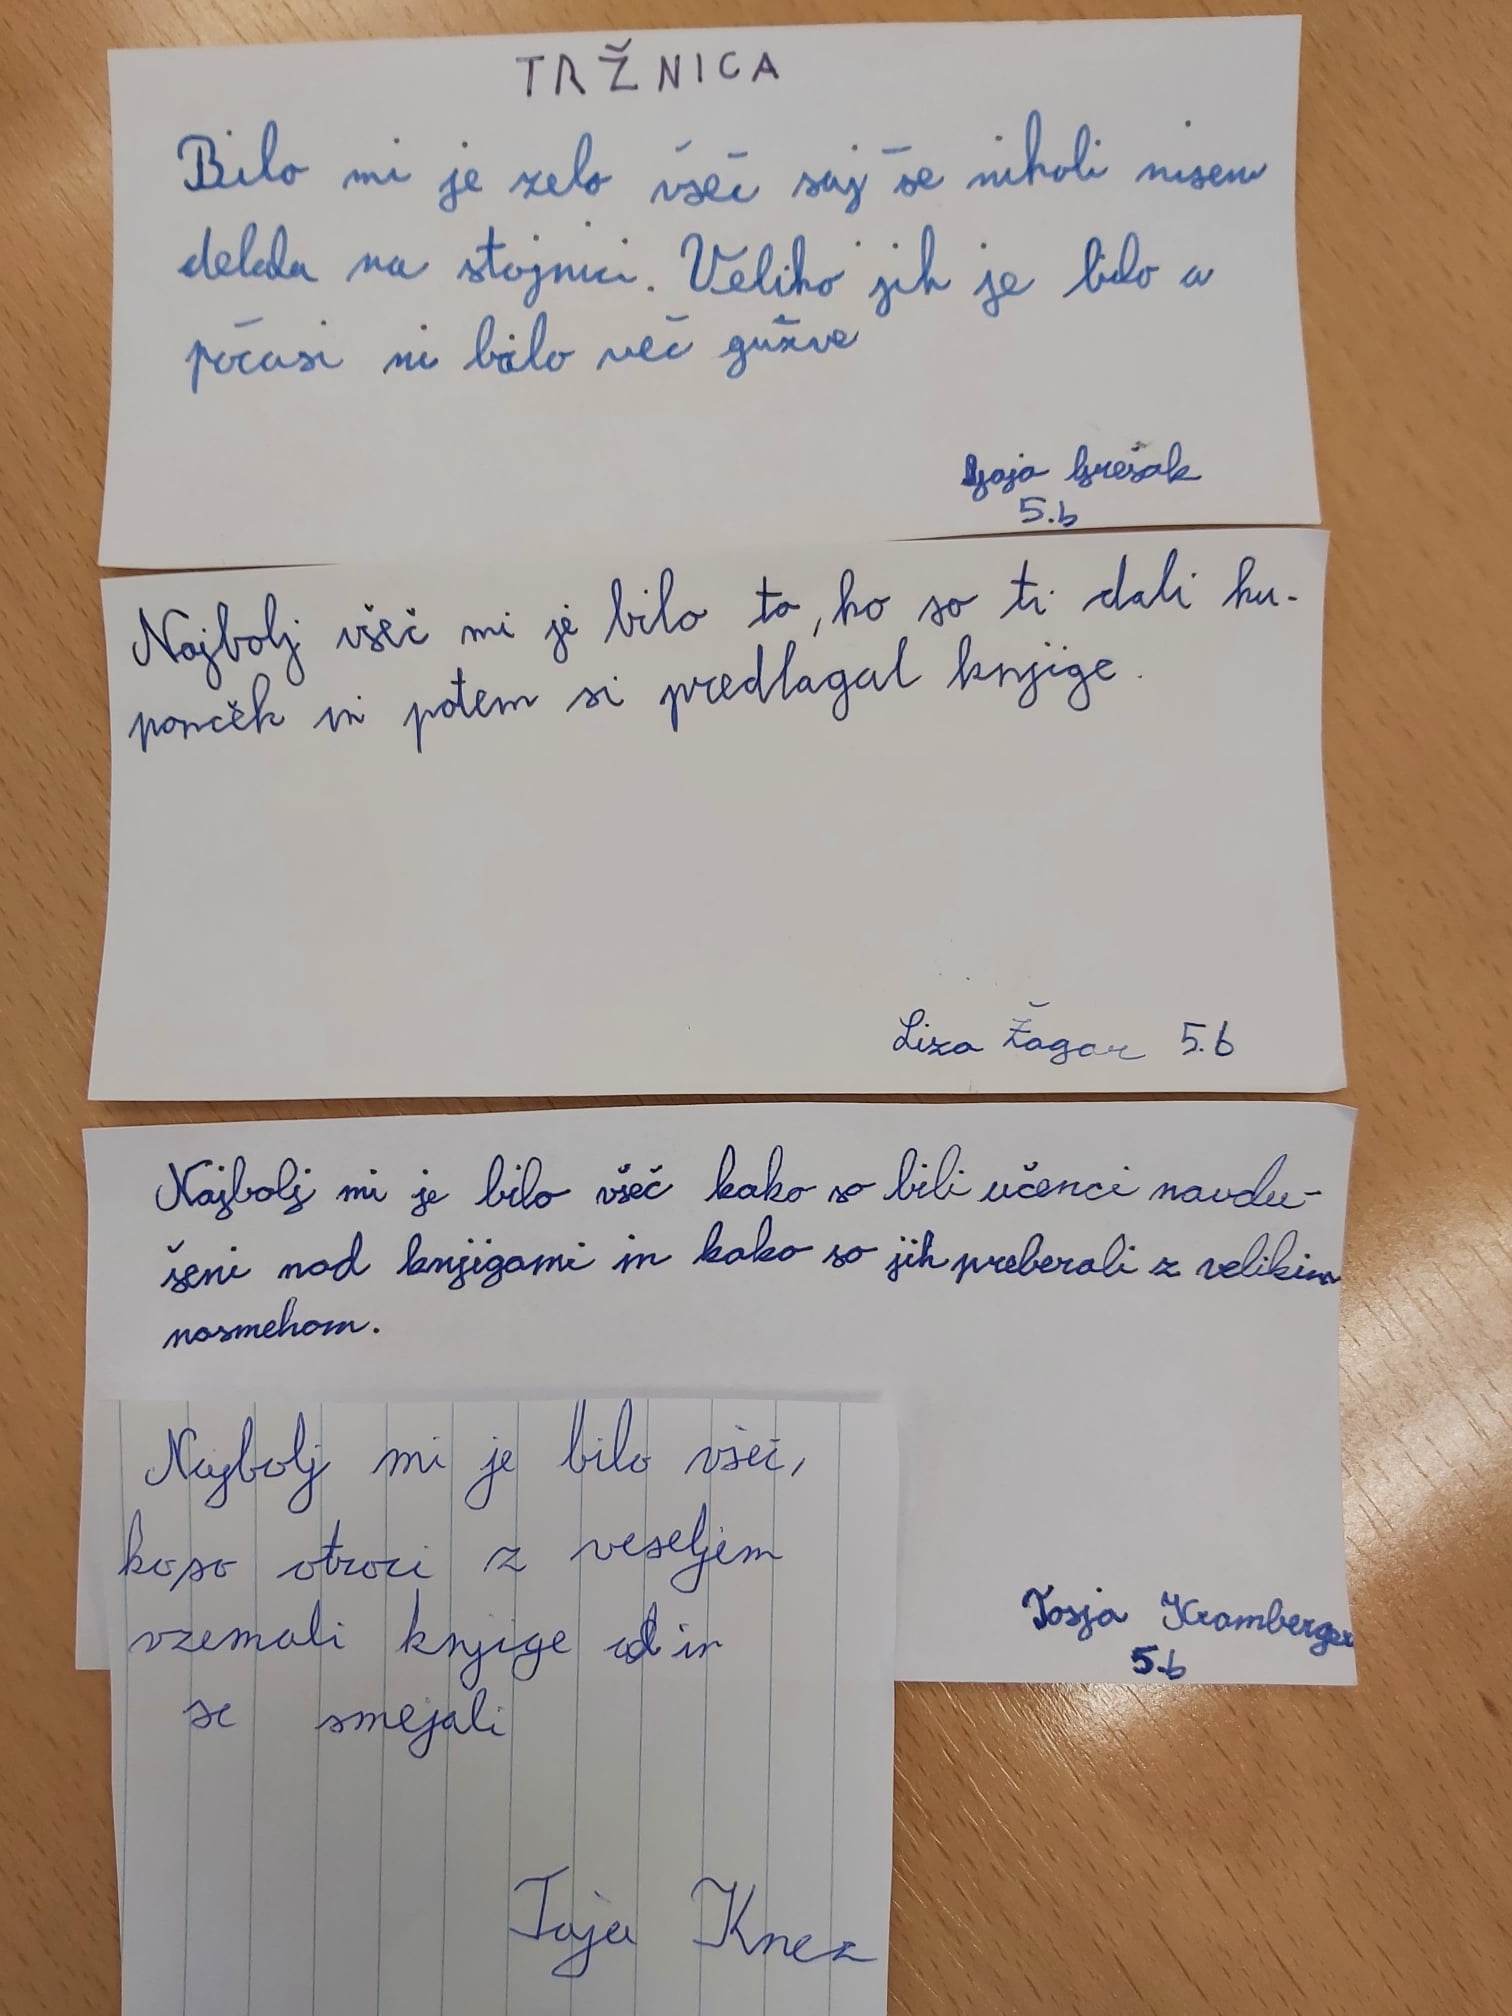 TRŽNICA
Bilo mi je zelo všeč saj še nikoli nisem
delala na stojnici. Veliko jih je bilo a
počasi ni bilo več gužve
Gaja Grešak
5.b
Najbolj všeč mi je bilo to, ko so ti dali ku-
ponček in potem si predlagal knjige.
Liza Žagar 5.b
Najbolj mi je bilo všeč kako so bili učenci navdu-
šeni nad knjigami in kako so jih preberali z velikim
nasmehom.
Tosja Kramberger
5.b
Najbolj mi je bilo všeč,
ko so otroci z veseljem
vzemali knjige in
se smejali
Taja Knez